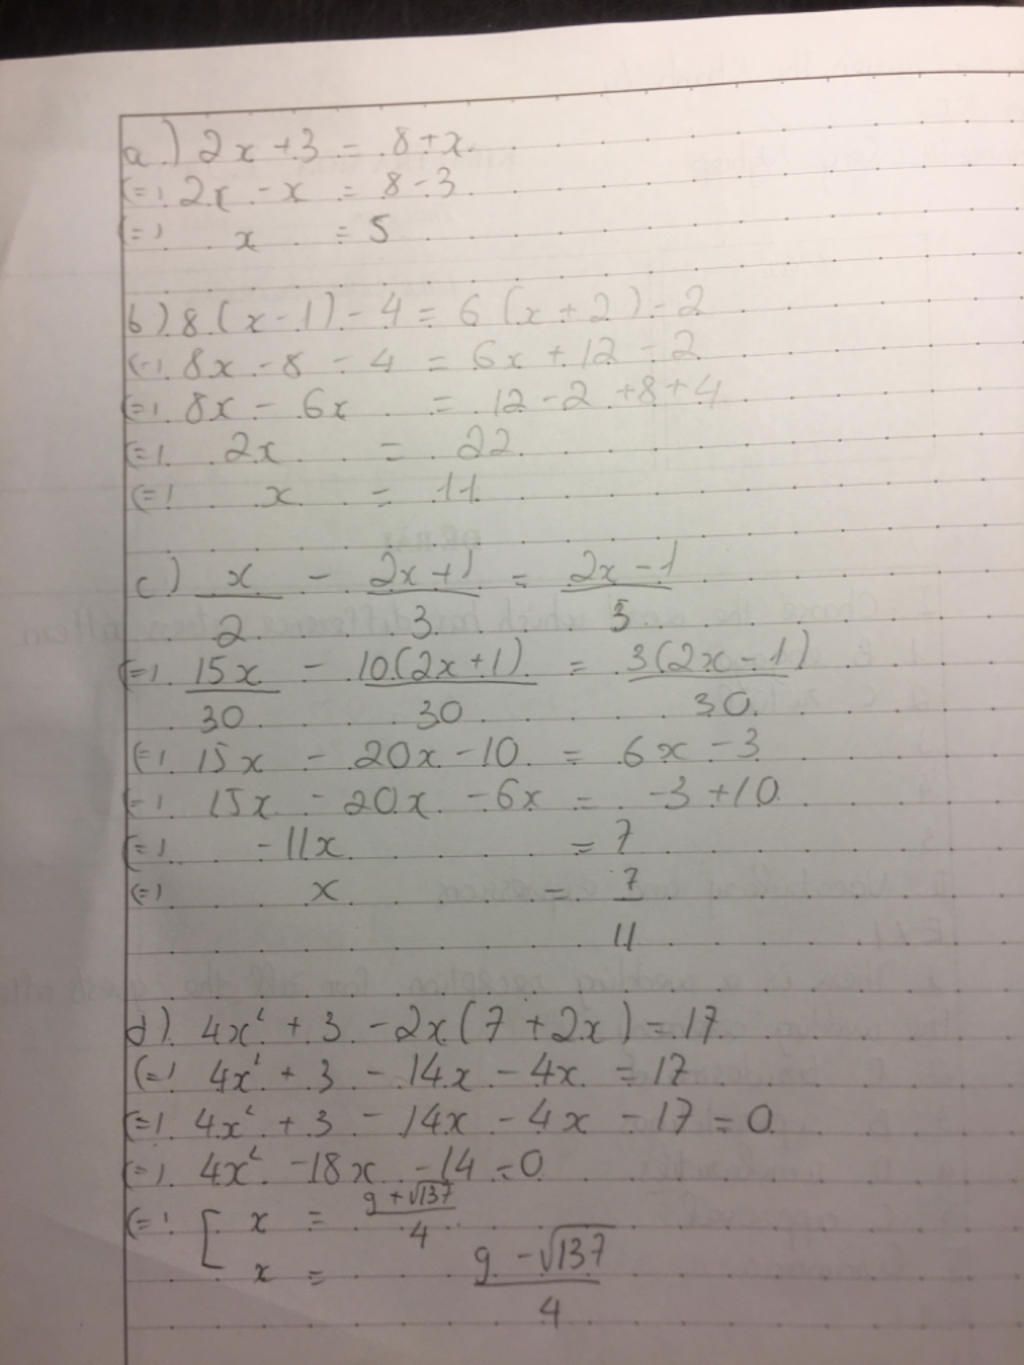 a) 2x + 3 = 8 + x
(=) 2x - x = 8 - 3
(=) x = 5
b) 8(x - 1) - 4 = 6(x + 2) - 2
(=) 8x - 8 - 4 = 6x + 12 - 2
(=) 8x - 6x = 12 - 2 + 8 + 4
(=) 2x = 22
(=) x = 11
c) x/2 - (2x + 1)/3 = (2x - 1)/5
(=) 15x/30 - 10(2x + 1)/30 = 3(2x - 1)/30
(=) 15x - 20x - 10 = 6x - 3
(=) 15x - 20x - 6x = -3 + 10
(=) -11x = 7
(=) x = 7/11
d) 4x² + 3 - 2x(7 + 2x) = 17
(=) 4x² + 3 - 14x - 4x = 17
(=) 4x² + 3 - 14x - 4x - 17 = 0
(=) 4x² - 18x - 14 = 0
(=) [ x = (9 + √137)/4
x = (9 - √137)/4